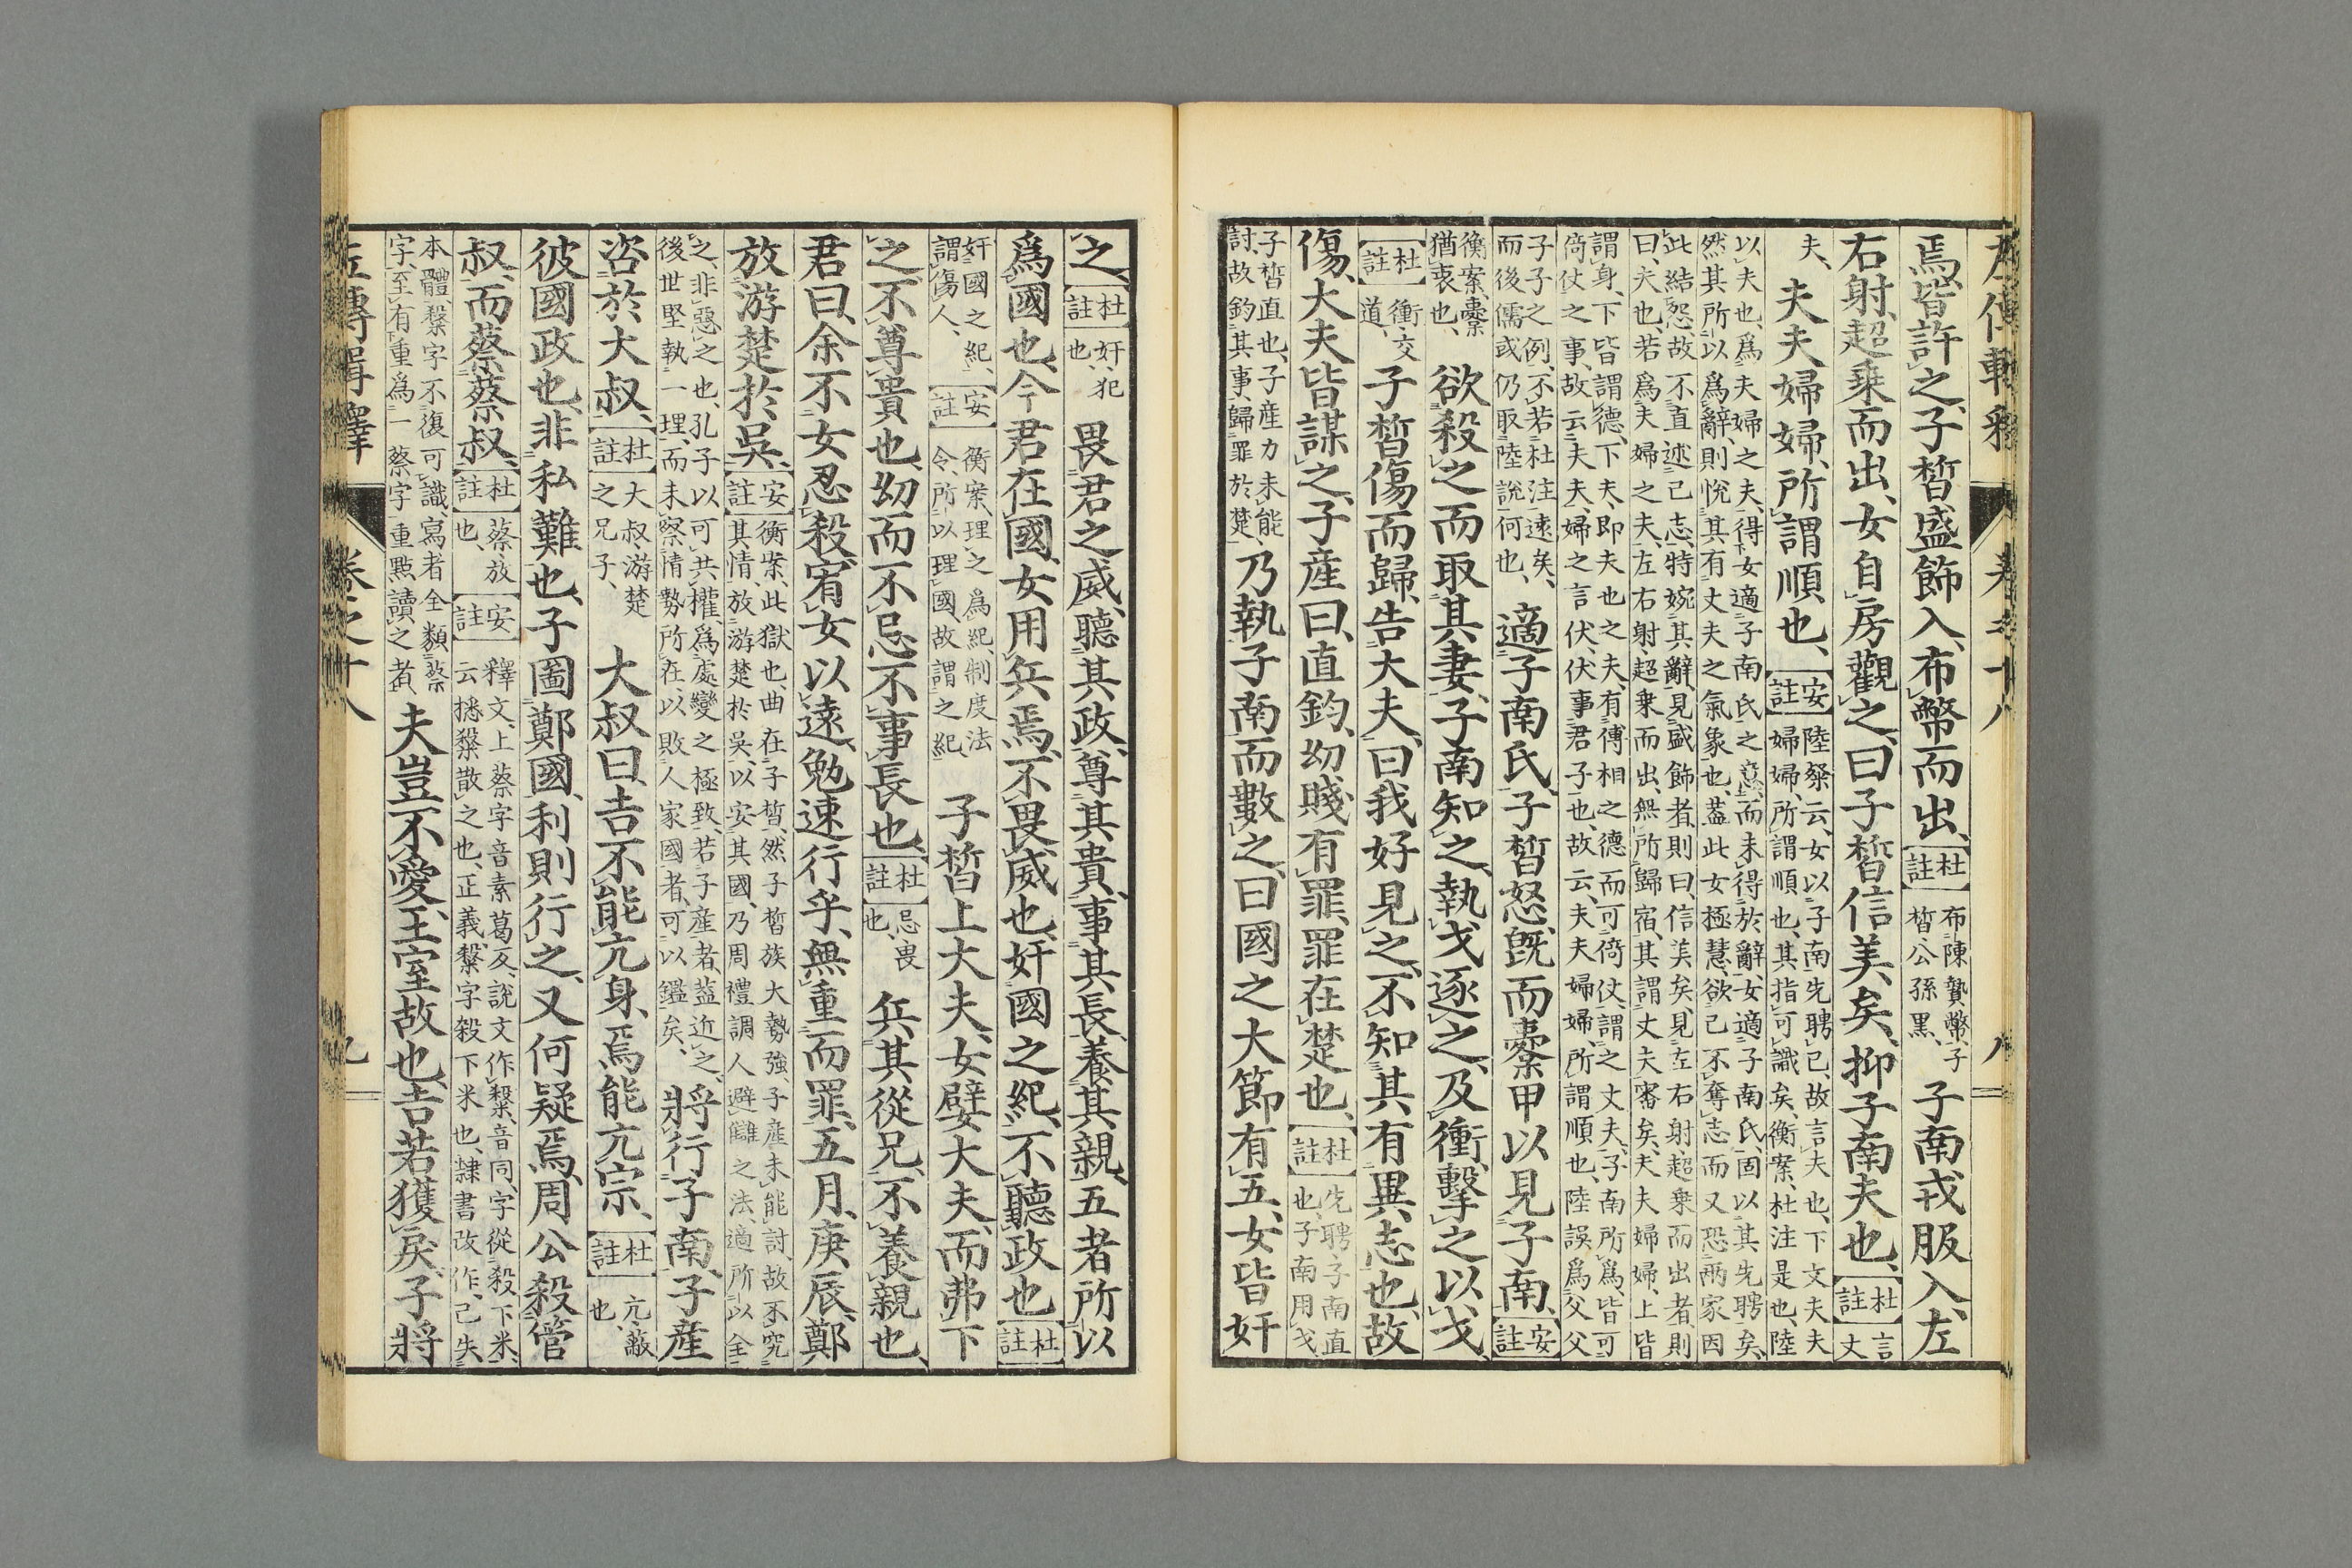 左傳輯釋 卷之十八 八
焉、皆許之、子皙盛飾入、布幣而出、【杜註】布陳贄幣、子皙、公孫黑、子南戎服入、左
右射、超乗而出、女自房觀之、曰子皙信美矣、抑子南夫也、【杜註】言丈
夫、夫夫婦婦、所謂順也、【安註】陸粲云、女以子南先聘已、故言夫也、下文夫夫婦婦、所謂順也、其指可識矣、衡案、杜注是也、陸
以夫也、爲夫婦之夫、得女適子南氏之意、而未得於辭、女適子南氏、固以其先聘矣、
然其所以爲辭、則悅其有丈夫之氣象也、蓋此女極慧、欲己不奪志、而又恐兩家因
此結怨、故不直述己志、特婉其辭、見盛飾者則曰、信美矣、見左右射、超乗而出者、則
曰、夫也、若爲夫婦之夫、左右射、超乗而出、無所歸宿、其謂丈夫審矣、夫夫婦婦、上皆
謂身、下皆謂德、下夫、即夫也之夫、有傅相之德、而可倚仗、謂之丈夫、子南所爲、皆可
倚仗之事、故云夫夫、婦之言伏、伏事君子也、故云、夫夫婦婦、所謂順也、陸誤爲父父
子子之例、不若杜注遠矣、
而後儒或仍取陸說何也、適子南氏、子皙怒、旣而櫜甲以見子南、【安註】
衡案、櫜
猶衷也、欲殺之而取其妻、子南知之、執戈逐之、及衝、擊之以戈、
【杜註】衝、交道、子皙傷而歸、告大夫、曰我好見之、不知其有異志也、故
傷、大夫皆謀之、子產曰、直鈞、幼賤有罪、罪在楚也、【杜註】先聘、子南直也、子南用戈、
子皙直也、子產力未能討、故鈞其事、歸罪於楚、乃執子南而數之、曰國之大節有五、女皆奸
之、【杜註】奸、犯也、畏君之威、聽其政、尊其貴、事其長、養其親、五者所以
爲國也、今君在國、女用兵焉、不畏威也、奸國之紀、不聽政也、【杜註】
奸國之紀、謂傷人、【安註】衡案、理之爲紀、制度法令、所以理國、故謂之紀、子皙上大夫、女嬖大夫、而弗下
之、不尊貴也、幼而不忌、不事長也、【杜註】忌、畏也、兵其從兄、不養親也、
君曰、余不女忍殺、宥女以遠、勉速行乎、無重而罪、五月、庚辰、鄭
放游楚於吳、【安註】衡案、此獄也、曲在子皙、然子皙族大勢強、子產未能討、故不究其情、放游楚於吳、以安其國、乃周禮調人避讎之法、適所以全
之、非惡之也、孔子以可共權、爲處變之極致、若子產者、蓋近之、
後世堅執一理、而未察情勢所在、以敗人家國者、可以鑑矣、將行子南、子產
咨於大叔、【杜註】大叔、游楚之兄子、大叔曰、吉不能亢身、焉能亢宗、【杜註】亢、蔽也、
彼國政也、非私難也、子圖鄭國、利則行之、又何疑焉、周公殺管
叔、而蔡蔡叔、【杜註】蔡、放也、【安註】釋文、上蔡字音素葛反、說文作𥻦、音同、字從殺下米、云𥻦散之也、正義、𥻦字殺下米也、隸書改作、已失
本體、𥻦字不復可識、寫者全類蔡
字、至有重爲一蔡字重點讀之者、夫豈不愛王室故也、吉若獲戾、子將
左傳輯釋 卷之十八 九